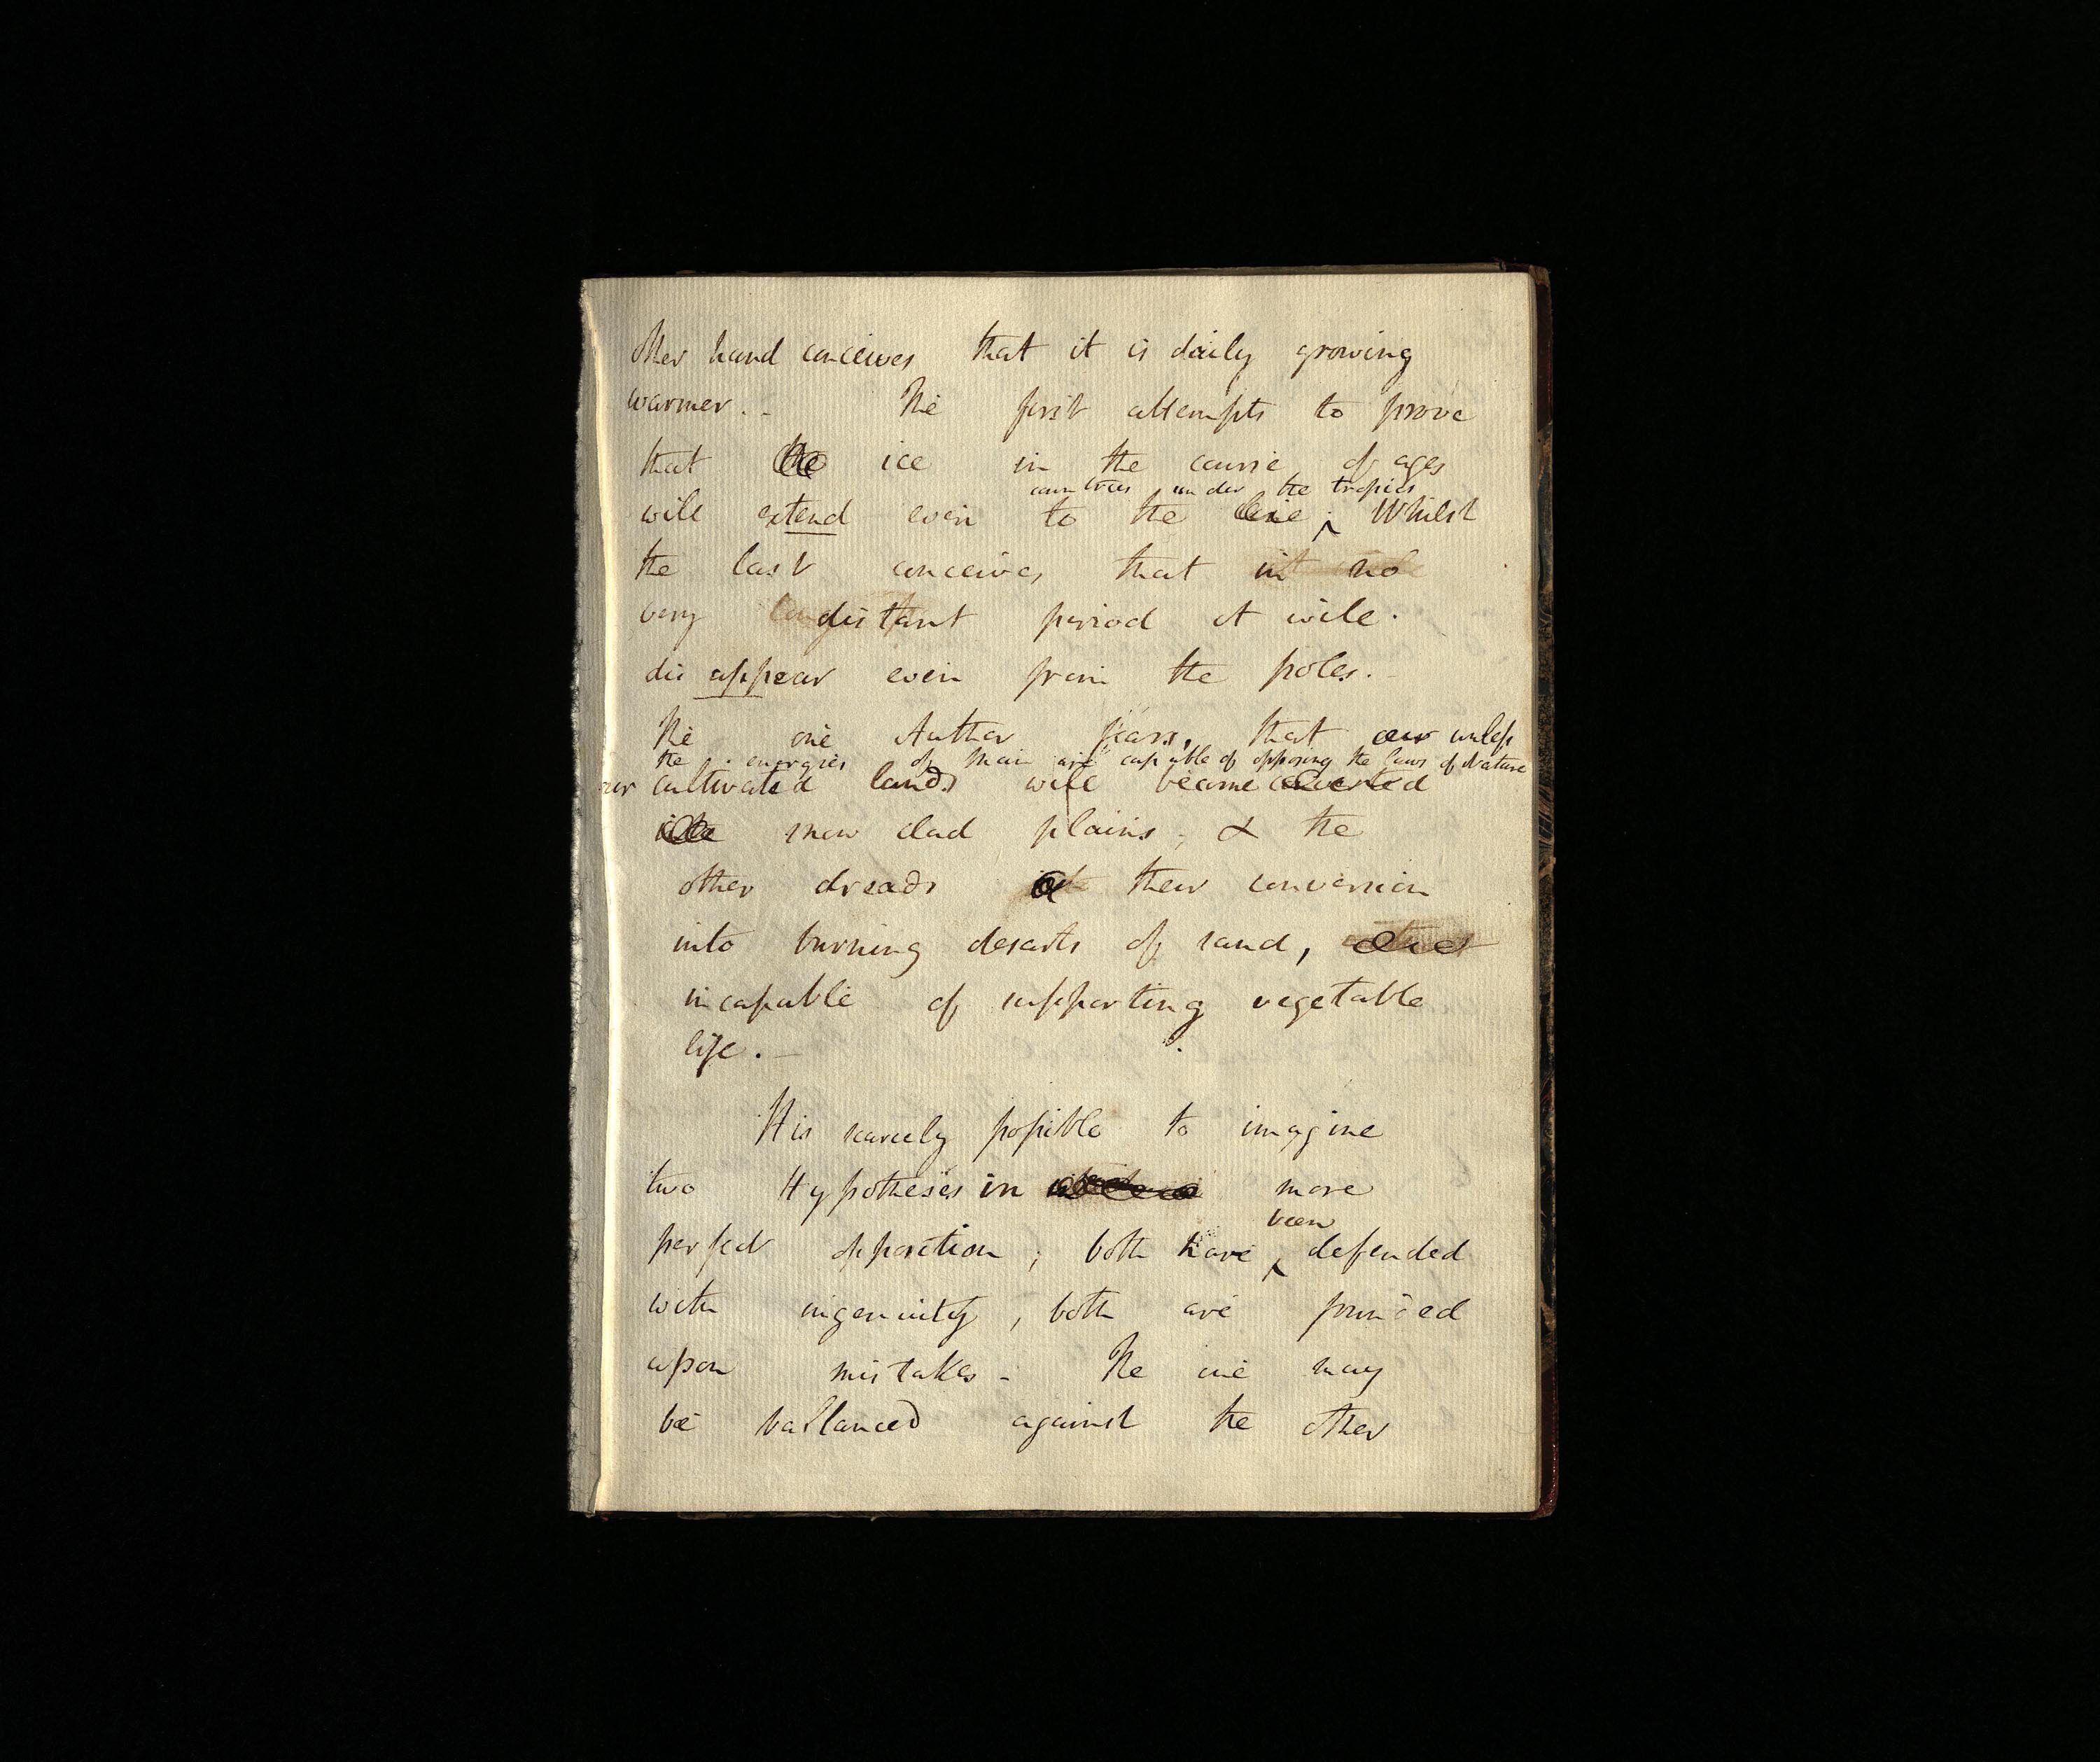 other hand conceives that it is daily growing
warmer. - The first attempts to prove
that the ice in the course of ages
countries under the tropics
will extend even to the line; Whilst
the last conceives that in no
very distant period it will
disappear even from the poles. -
The one Author fears, that our unless
the energies of Man are capable of opposing the laws of Nature
our cultivated lands will become converted
into snow clad plains; & the
other dreads their conversion
into burning desarts of sand,
incapable of supporting vegetable
life. -
It is scarcely possible to imagine
two Hypotheses in more
been
perfect opposition; both have defended
with ingenuity, both are founded
upon mistakes - The one may
be ballanced against the other